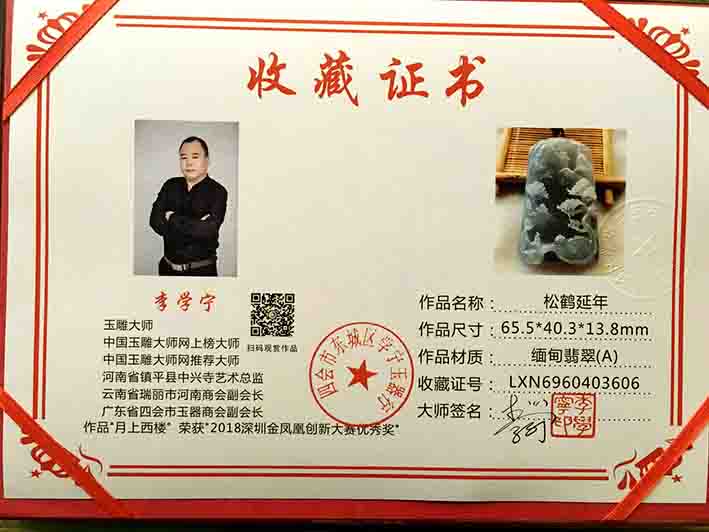 收藏证书
李学宁
玉雕大师
中国玉雕大师网上榜大师
中国玉雕大师网推荐大师
河南省镇平县中兴寺艺术总监
云南省瑞丽市河南商会副会长
广东省四会市玉器商会副会长
作品"月上西楼" 荣获"2018深圳金凤凰创新大赛优秀奖"
扫码观赏作品
四会市东城区学宁玉器行
作品名称: 松鹤延年
作品尺寸: 65.5*40.3*13.8mm
作品材质: 缅甸翡翠(A)
收藏证号: LXN6960403606
大师签名:
李學寧印